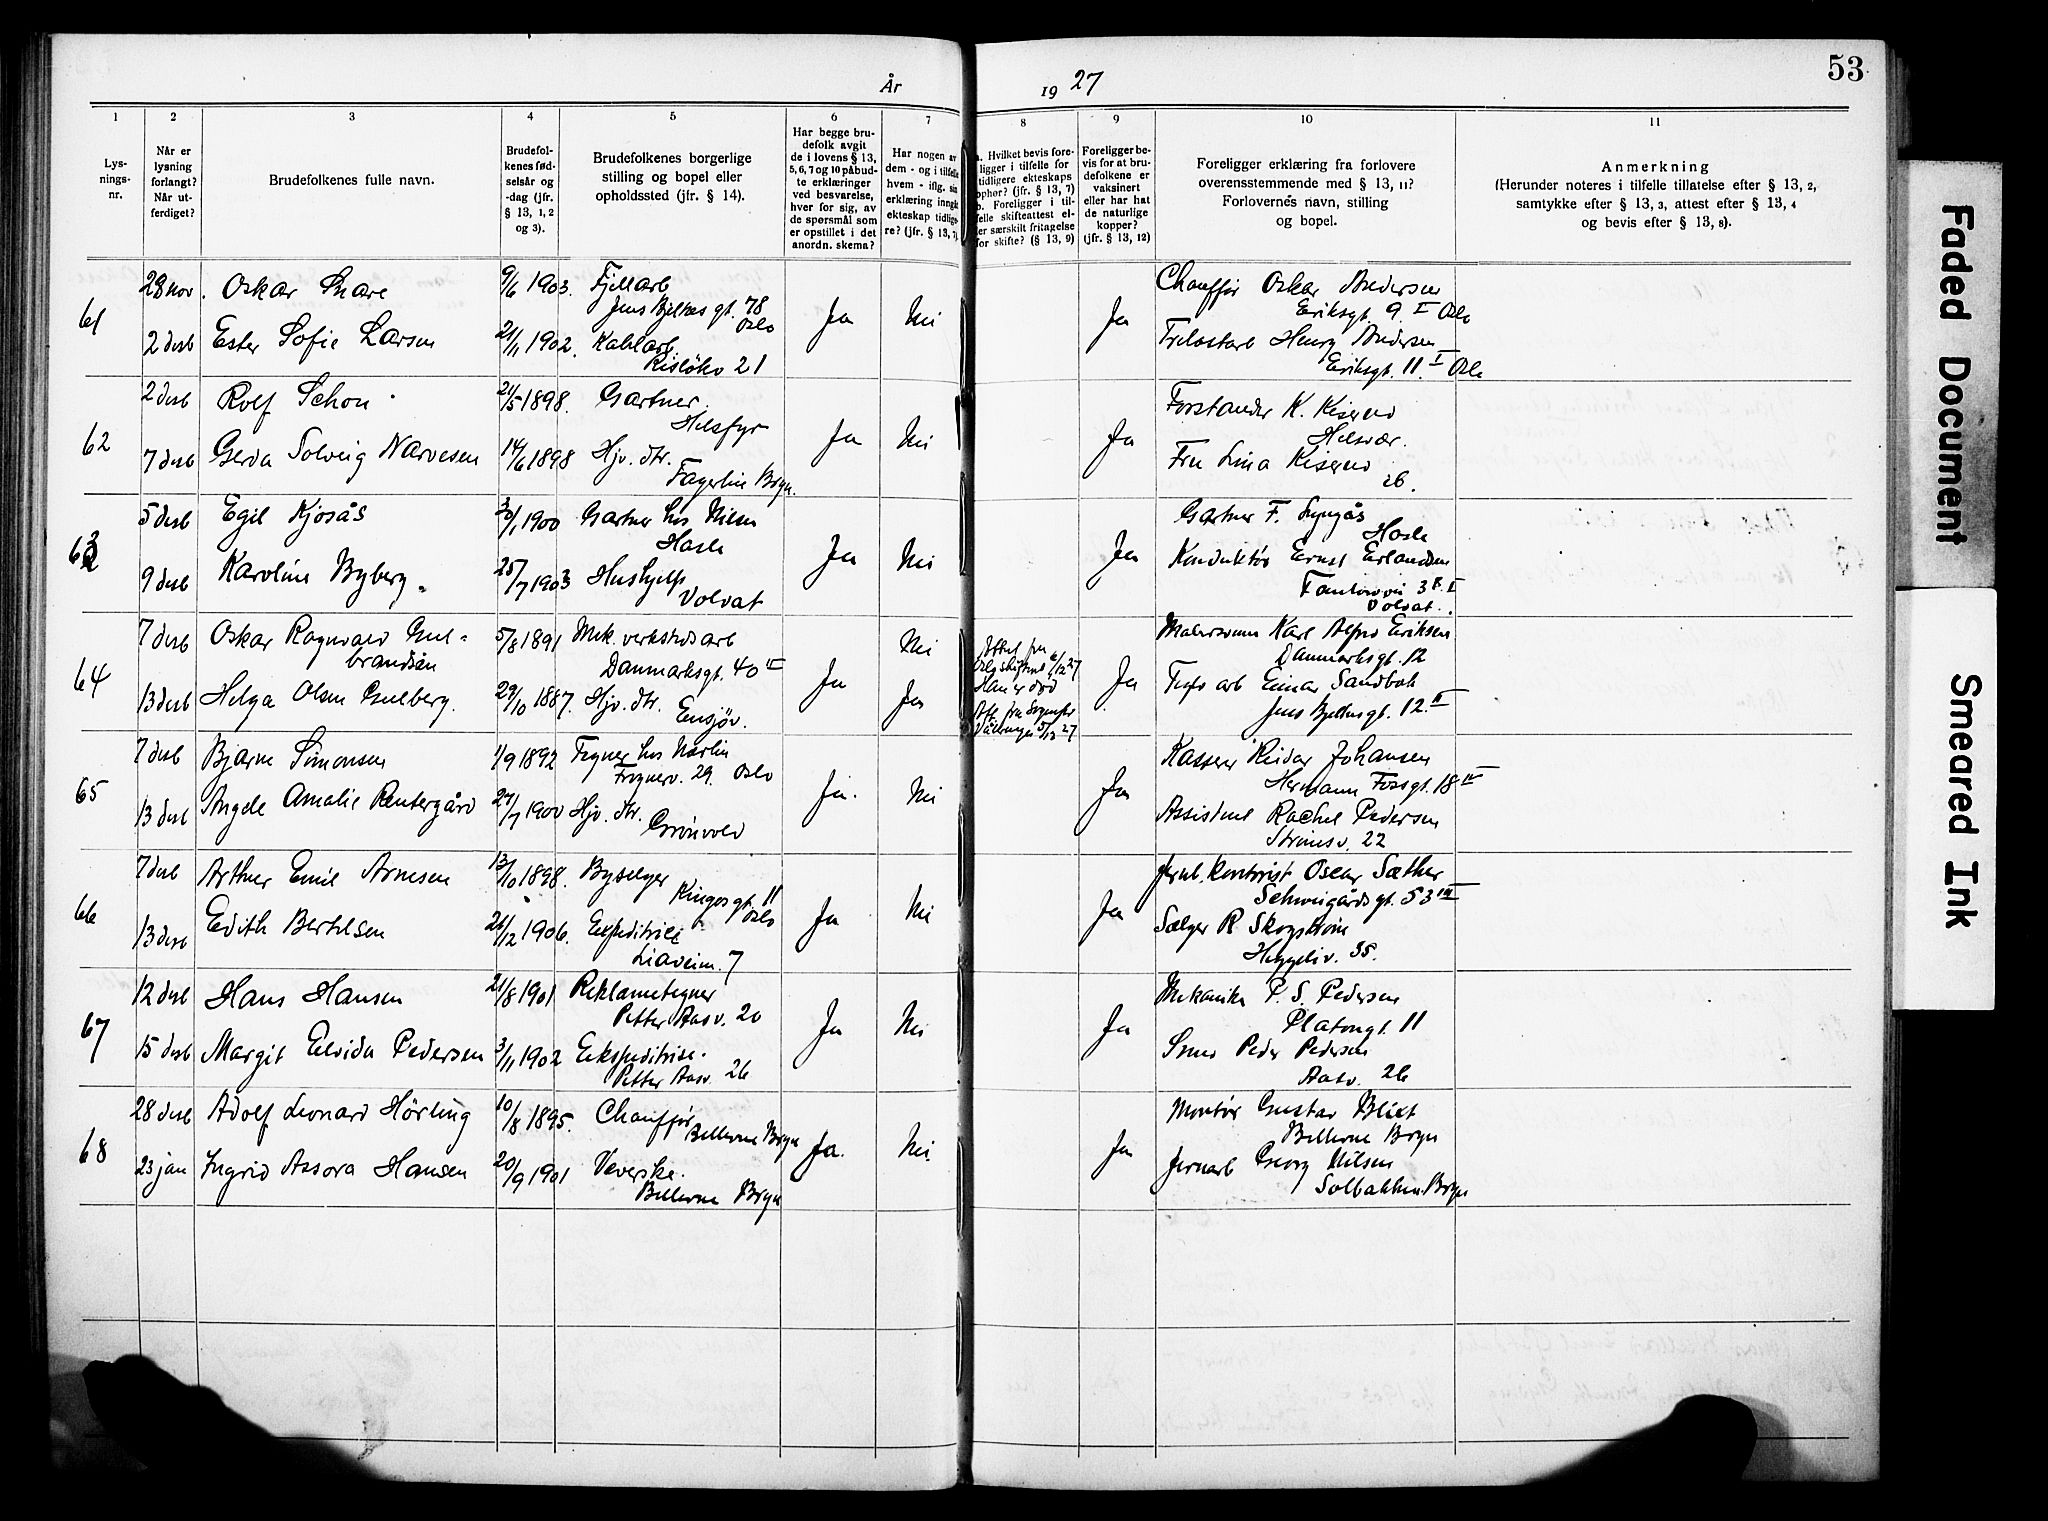 53
År 1927
1
Lys-
nings-
nr.
2
Når er
lysning
forlangt?
Når ut-
ferdiget?
3
Brudefolkenes fulle navn.
4
Brudefol-
kenes fød-
selsår og
-dag (jfr.
§ 13, 1, 2
og 3).
5
Brudefolkenes borgerlige
stilling og bopel eller
opholdssted (jfr. § 14).
6
Har begge bru-
defolk avgit
de i lovens § 13,
5, 6, 7 og 10 påbud-
te erklæringer
ved besvarelse,
hver for sig, av
de spørsmål som
er opstillet i det
anordn. skema?
7
Har nogen av
dem - og i tilfelle
hvem - iflg. sin
erklæring inngått
ekteskap tidlige-
re? (jfr. § 13, 7).
8
a. Hvilket bevis fore-
ligger i tilfelle for
tidligere ekteskaps
ophør? (jfr. § 13, 7)
b. Foreligger i til-
felle skifteattest el-
ler særskilt fritagelse
for skifte? (§ 13, 9)
9
Foreligger be-
vis for at bru-
defolkene er
vaksinert
eller har hat
de naturlige
kopper?
(jfr. § 13, 12)
10
Foreligger erklæring fra forlovere
overensstemmende med § 13, 11?
Forlovernes navn, stilling
og bopel.
11
Anmerkning
(Herunder noteres i tilfelle tillatelse efter § 13, 2,
samtykke efter § 13, 3, attest efter § 13, 4
og bevis efter § 13, 8).
61
28 nov.
2 desb
Oskar Snare
Ester Sofie Larsen
9/6 1903.
21/11 1902.
Fjellarb
Jens Bjelkes gt. 78
Oslo
Kabelarb.
Risløkv 21
Ja
Nei
Ja
Chauffør Oskar Andersen
Eriksgt. 9 I Oslo
Henry Andersen
Eriksgt. 11 I Oslo
62
2 desb
7 desb
Rolf Schou
Gerda Solveig Narvesen
21/5 1898.
14/6 1898
Gartner.
Helsfyr
Hjv. dtr.
Fagerlia Bryn.
Ja
Nei
Ja
Forstander K. Kiserud
Fru Lina Kiserud
63
5 desb
9 desb
Egil Kjosås
Karoline Byberg
30/1 1900
25/7 1903
Gartner hos Nilsen
Hasle
Hushjelp
Volvat
Ja
Nei
Ja
Gartner F. Lyngås
Hasle
Konduktør Ernst Erlandsen
Volvat.
64
7 desb
13 desb
Oskar Ragnvald Gul-
brandsen
Helga Olsen Gulberg.
5/8 1891
29/10 1887.
Mek. verkstedsarb
Danmarksgt. 40 II
Hjv. dtr.
Ensjøv.
Ja
Nei
Ja
Attest fra
Oslo skifterett 6/12 27
Han er død
Att. fra Sogneprest
Vålerengen 5/12 27
Ja
Malersvenn Karl Alfred Eriksen
Danmarksgt. 12
arb Einar Sandbak
Jens Bjelkesgt. 12 II
65
7 desb
13 desb
Bjarne Simonsen
Angele Amalie Rentergård
1/9 1892
27/7 1900
Tegner hos Narlin
Frognerv. 29. Oslo
Hjv. dtr.
Grønvold
Ja.
Nei
Ja
Kasserer Reidar Johansen
Hermann Fossgt. 18 IV
Assistent Rachel Pedersen
Strømsv. 22
66
7 desb
13 desb
Arthur Emil Arnesen
Edith Bertelsen
13/10 1898.
26/12 1906.
Byselger
Kingosgt. 11
Oslo
Expeditrise
Liaveien. 7
Ja
Nei
Ja
Jernb. kontorist Oscar Sæther
Schweigårdsgt. 53 III
Sælger R Skogstrøm
Heggeliv. 35.
67
12 desb
15 desb
Hans Hansen
Margit Elvida Pedersen
21/8 1901
3/11 1902
Reklametegner
Petter Aasv. 20
Ekspeditrise.
Petter Aasv. 26
Ja
Nei
Ja
Mekaniker P. S. Pedersen
Platousgt. 11
Smed Peder Pedersen
Aasv. 26
68
28 desb
23 jan
Adolf Leonard Hörling
Ingrid Assora Hansen
10/8 1895.
20/9 1901
Chauffør
Bellevue Bryn
Veverske.
Bellevue Bryn
Ja.
Nei.
Ja
Montør Gustav Blixt
Bellevue Bryn
Jernarb Georg Nilsen
Solbakken Bryn
Faded Document
Smeared Ink